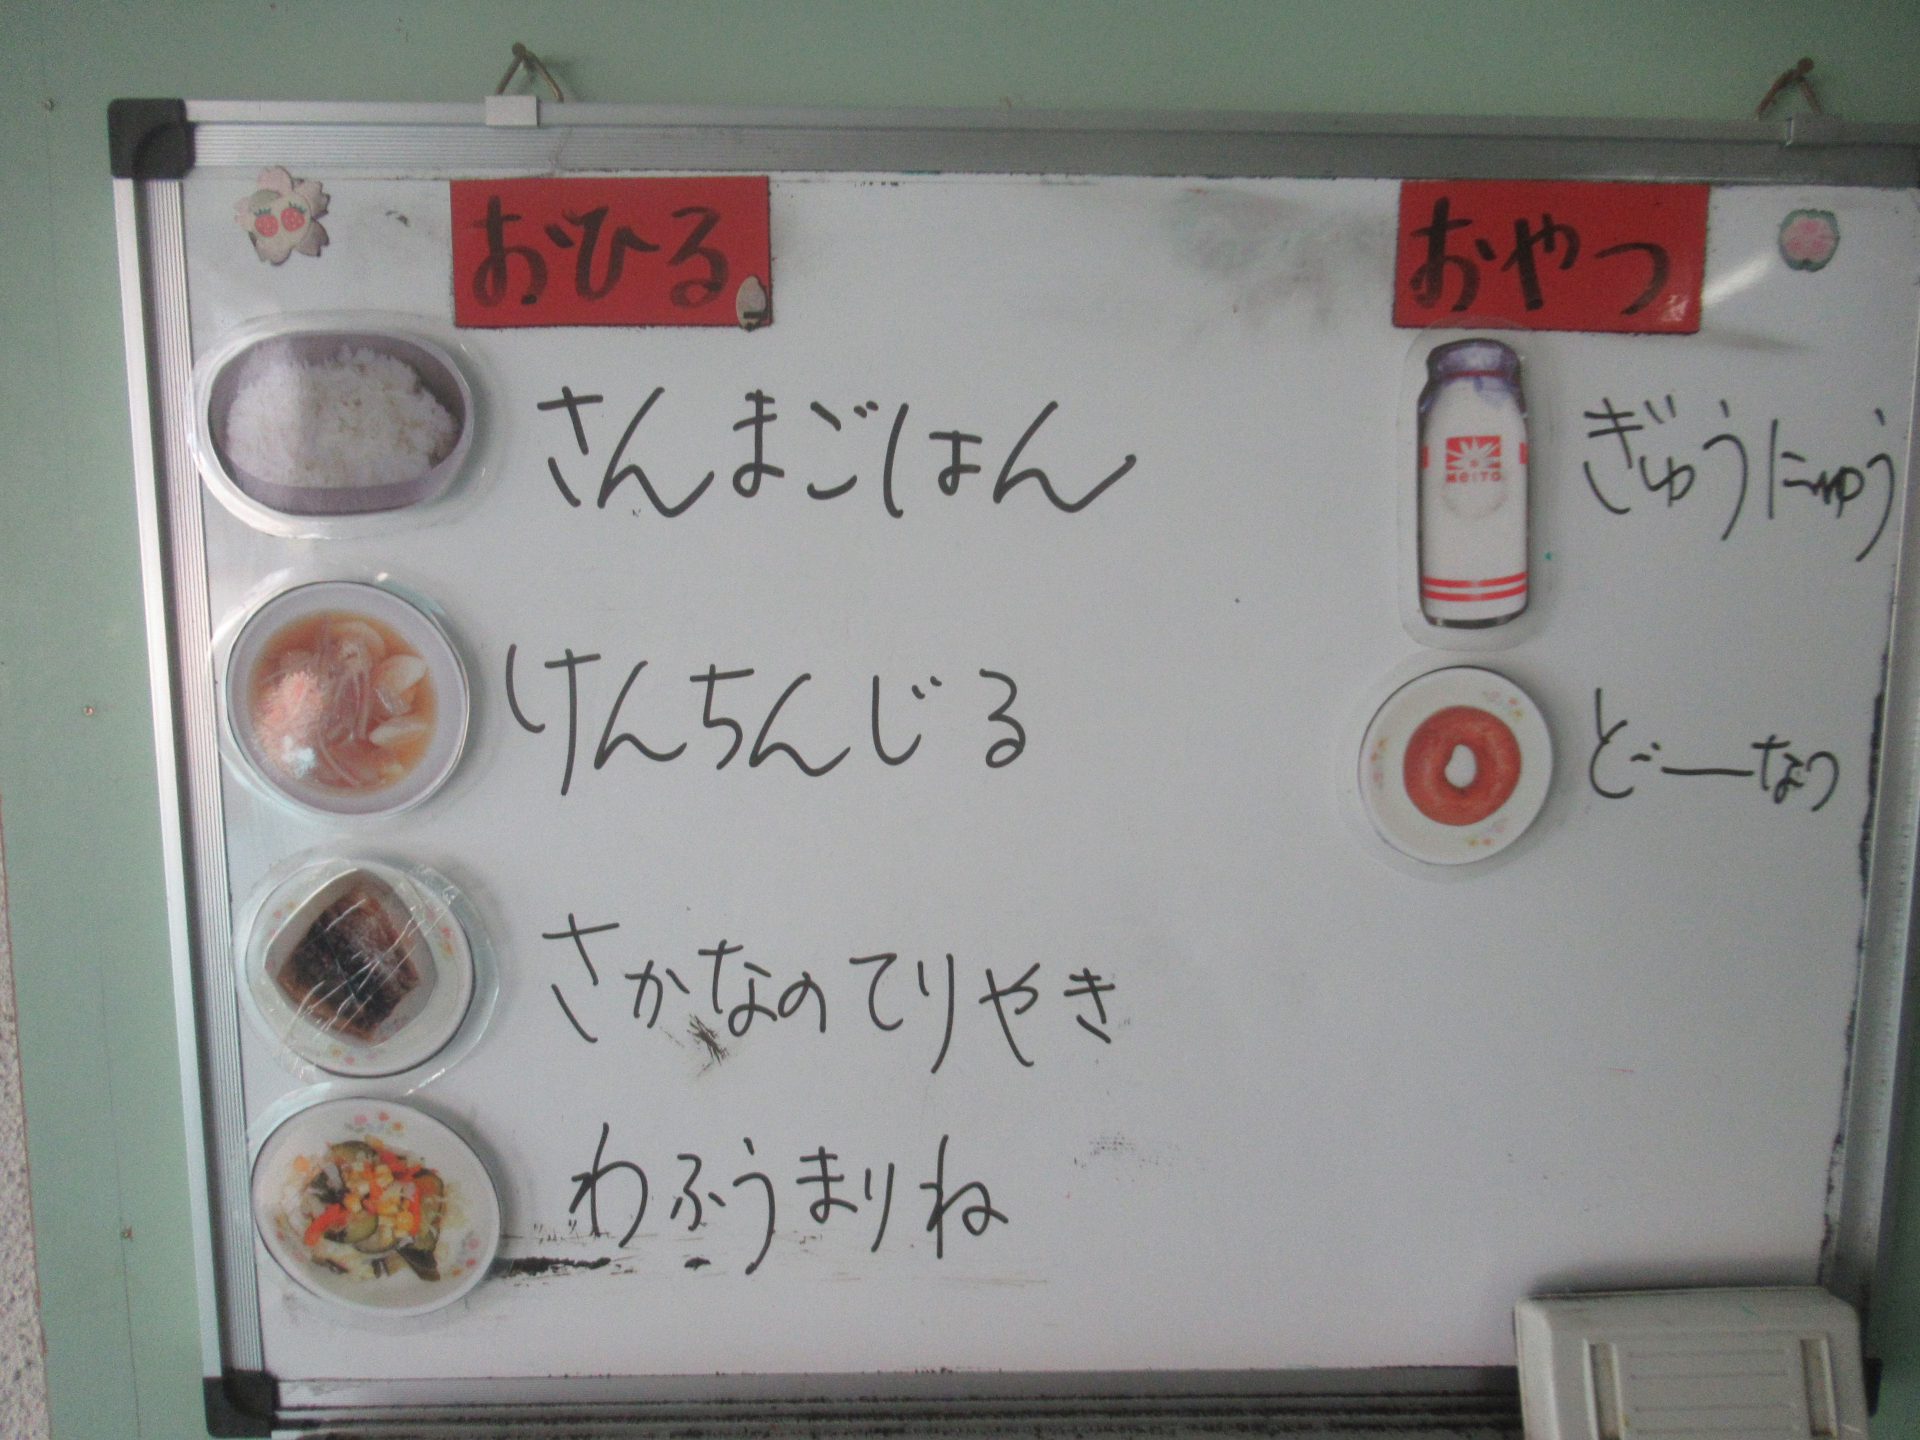 おひる
さんまごはん
けんちんじる
さかなのてりやき
わふうまりね
おやつ
MeiTO
ぎゅうにゅう
どーなつ